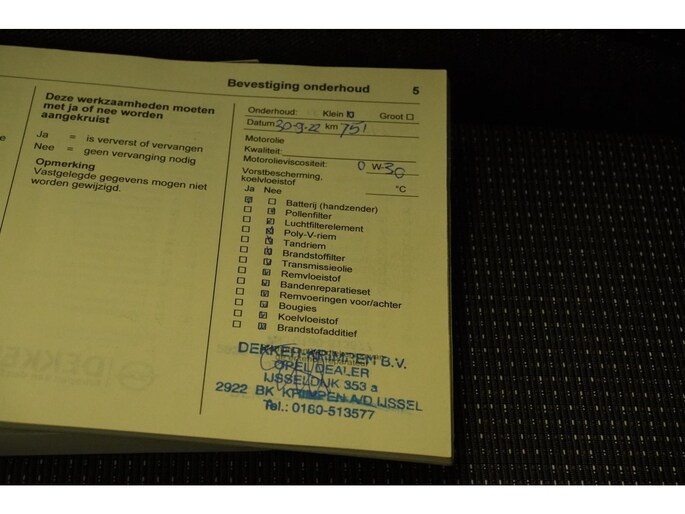 Bevestiging onderhoud 5
Deze werkzaamheden moeten
met ja of nee worden
aangekruist
Ja = is ververst of vervangen
Nee = geen vervanging nodig
Opmerking
Vastgelegde gegevens mogen niet
worden gewijzigd.
Onderhoud: Klein Groot
Datum 30-9-22 km 751
Motorolie
Kwaliteit:
Motorolieviscositeit: 0 W-30
Vorstbescherming,
koelvloeistof °C
Ja Nee
Batterij (handzender)
Pollenfilter
Luchtfilterelement
Poly-V-riem
Tandriem
Brandstoffilter
Transmissieolie
Remvloeistof
Bandenreparatieset
Remvoeringen voor/achter
Bougies
Koelvloeistof
Brandstofadditief
DEKKER-KRIMPEN B.V.
OPEL DEALER
IJSSELDIJK 353 a
2922 BK KRIMPEN A/D IJSSEL
Tel.: 0180-513577